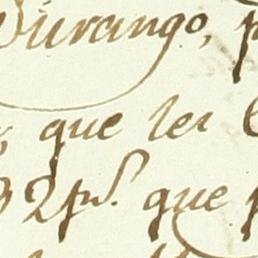 Durango, p
que les
2 ps. que p